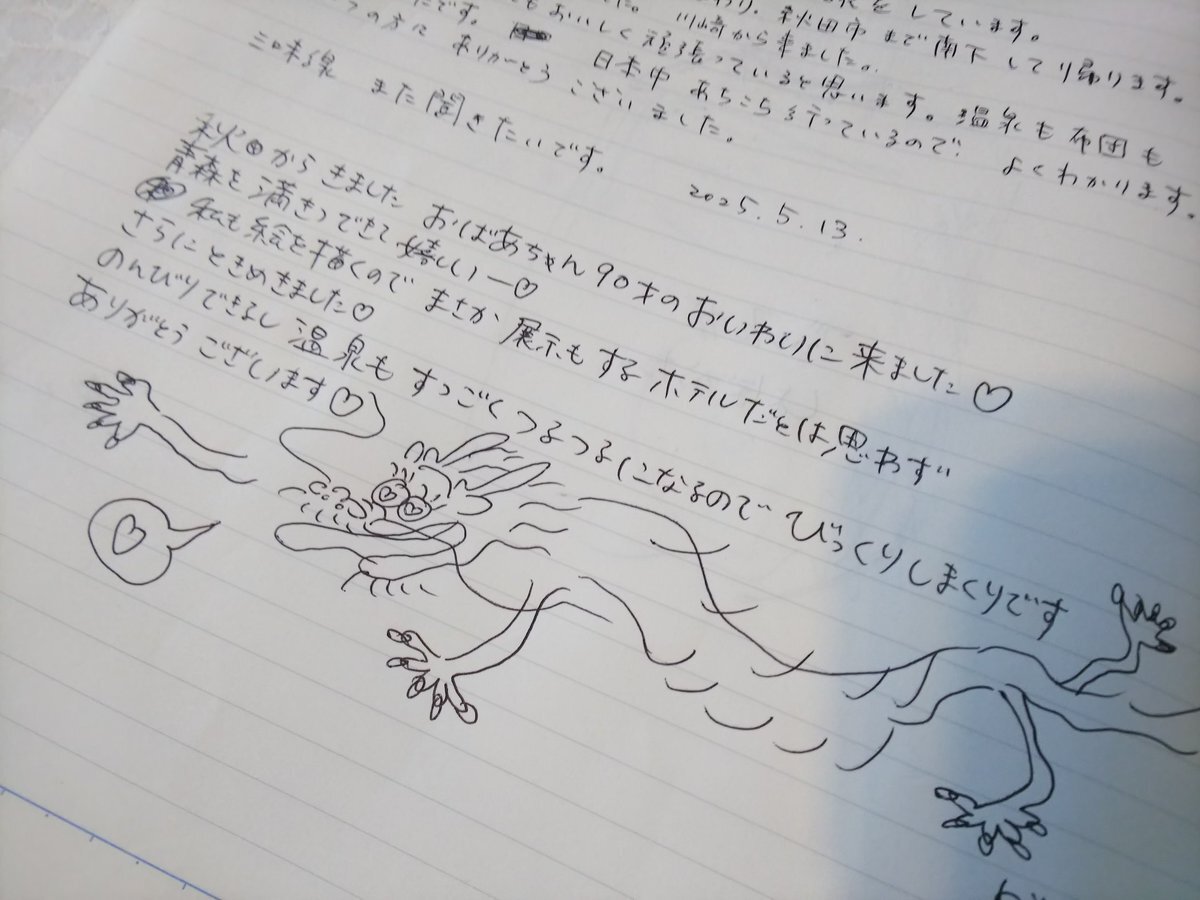 をしています。
秋田市まで南下して帰ります。
川崎から来ました。
おいしく頑張っていると思います。温泉も布団も
です。
日本中あちこち行っているので、よくわかります。
の方に ありがとうございました。
三味線 また聞きたいです。
2025.5.13.
秋田からきました おばあちゃん90才のおいわいに来ました♡
青森を満きつできて嬉しいー♡
私も絵を描くので まさか展示もするホテルだとは思わず
さらにときめきました♡
のんびりできるし 温泉もすっごくつるつるになるので びっくりしまくりです
ありがとうございます♡